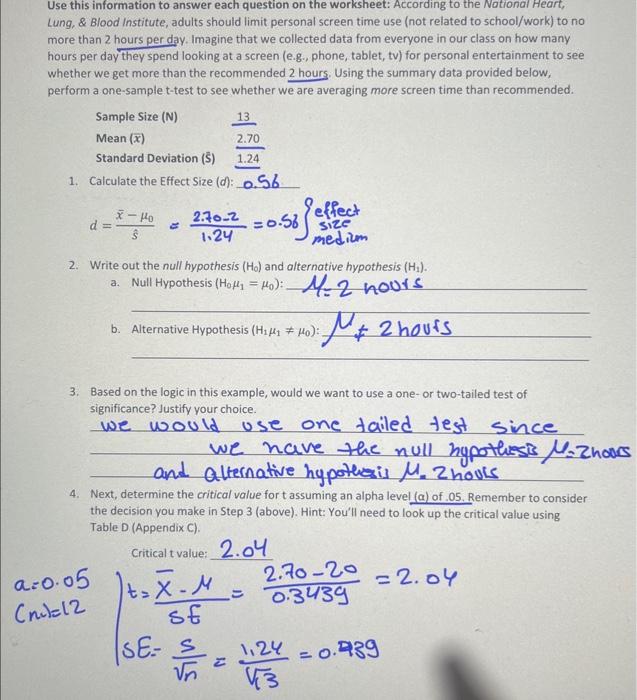 Use this information to answer each question on the worksheet: According to the National Heart,
Lung, & Blood Institute, adults should limit personal screen time use (not related to school/work) to no
more than 2 hours per day. Imagine that we collected data from everyone in our class on how many
hours per day they spend looking at a screen (e.g., phone, tablet, tv) for personal entertainment to see
whether we get more than the recommended 2 hours. Using the summary data provided below,
perform a one-sample t-test to see whether we are averaging more screen time than recommended.
Sample Size (N) 13
Mean (x̄) 2.70
Standard Deviation (Ŝ) 1.24
1. Calculate the Effect Size (d): 0.56
d = x̄ − μ₀ / ŝ = 2.70-2 / 1.24 = 0.56 } effect size medium
2. Write out the null hypothesis (H₀) and alternative hypothesis (H₁).
a. Null Hypothesis (H₀μ₁ = μ₀): M= 2 hours
b. Alternative Hypothesis (H₁μ₁ ≠ μ₀): M ≠ 2 hours
3. Based on the logic in this example, would we want to use a one- or two-tailed test of
significance? Justify your choice.
we would use one tailed test since
we have the null hypothesis M=2 hours
and alternative hypothesis M. 2 hours
4. Next, determine the critical value for t assuming an alpha level (α) of .05. Remember to consider
the decision you make in Step 3 (above). Hint: You'll need to look up the critical value using
Table D (Appendix C).
Critical t value: 2.04
a=0.05
t= X̄ - M / SE = 2.70-20 / 0.3439 = 2.04
SE= S / √n = 1.24 / √13